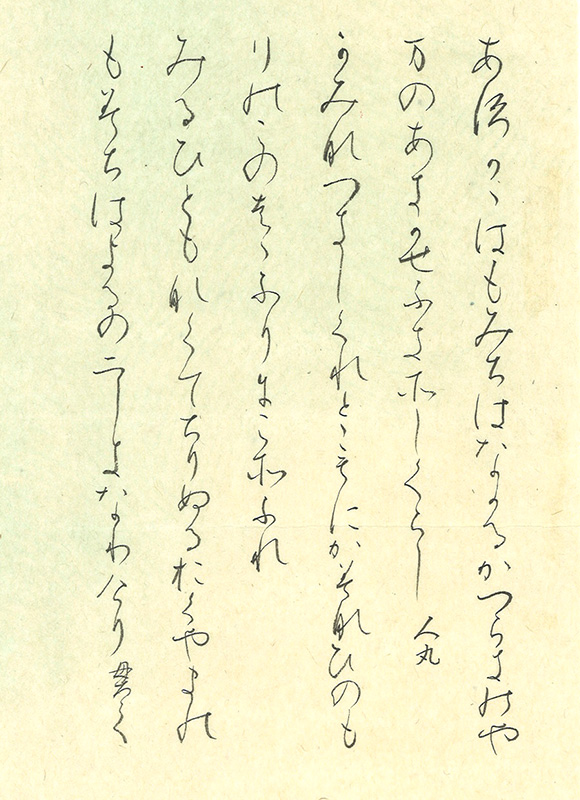 あ須かゝはもみちはなかるかつらきのや
万のあきかせふきそしくらし　人丸
かみなつきしくれとゝもにかみなひのも
りのこのはゝふりにこそふれ
みるひともなくてちりぬるおくやまの
もみちはよるのにしきなりけり　貫之